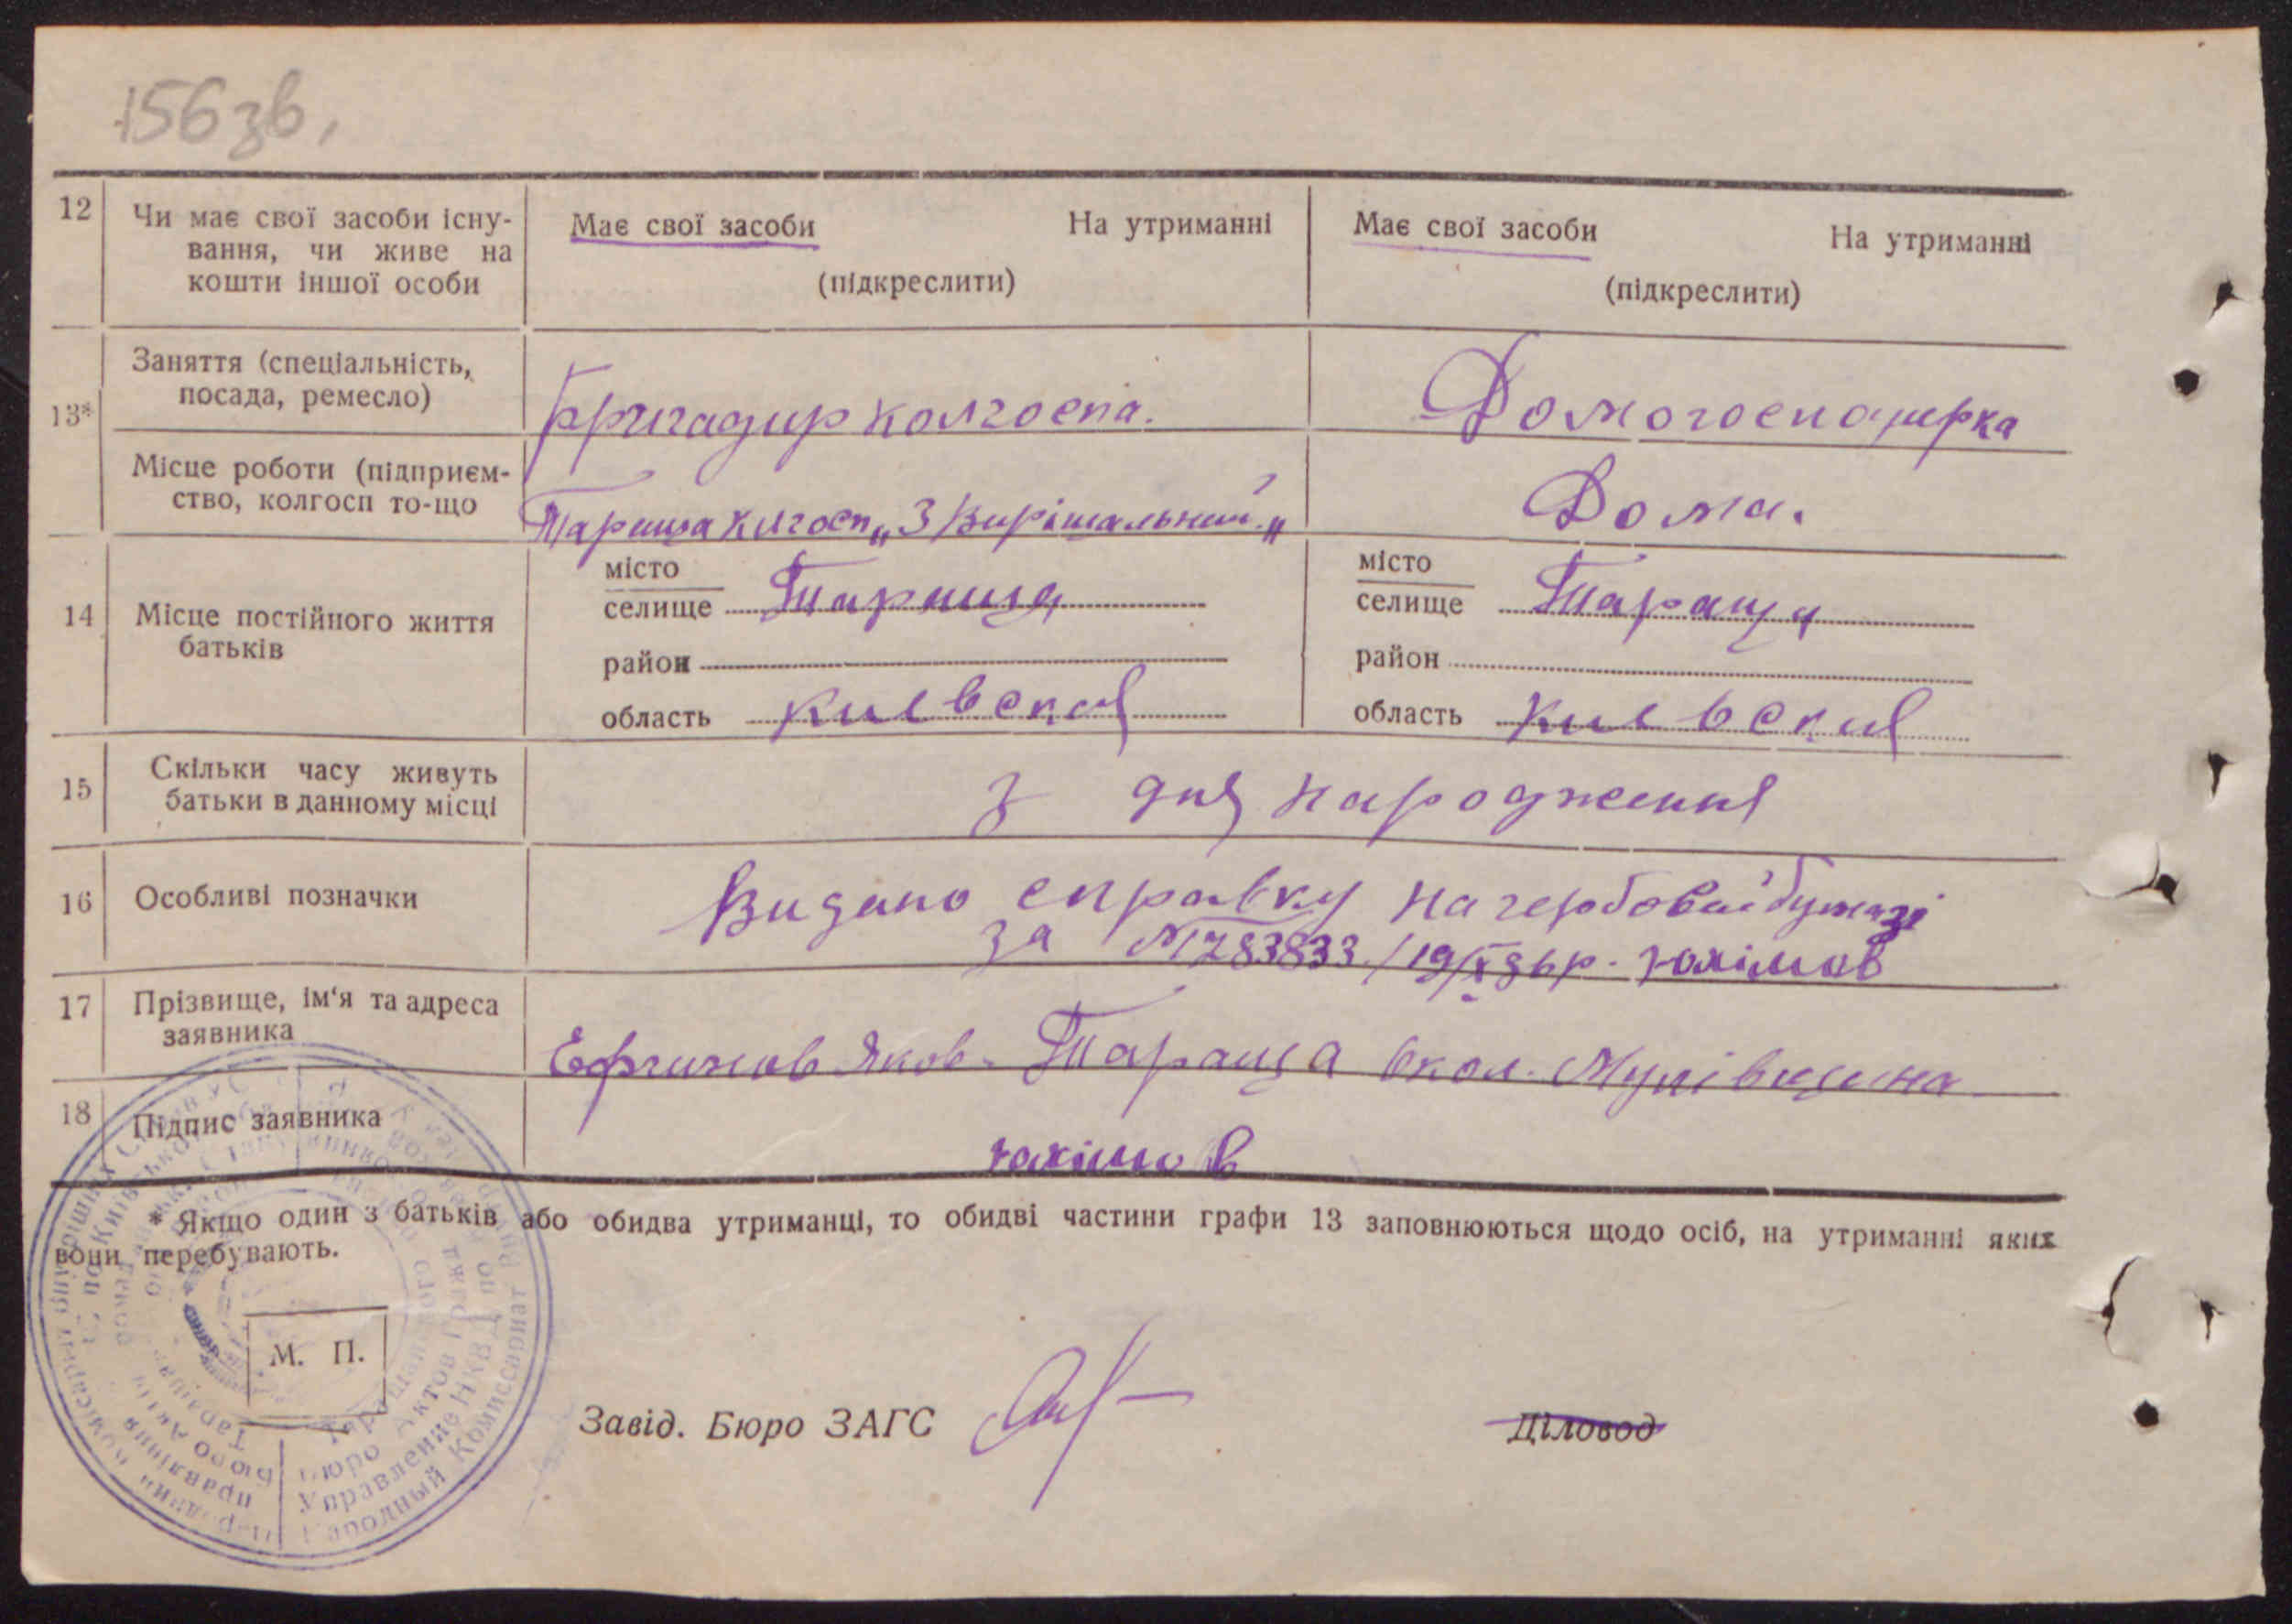 156зв,
12 Чи має свої засоби існу-
вання, чи живе на
кошти іншої особи
Має свої засоби На утриманні
(підкреслити)
Має свої засоби На утриманні
(підкреслити)
13*
Заняття (спеціальність,
посада, ремесло)
Бригадир колгоспа.
Домогосподирка
Місце роботи (підприєм-
ство, колгосп то-що
Тараща Клгосп „3 Вирішальний"
Дома.
14 Місце постійного життя
батьків
місто
селище Тараща
район
область Киевская
місто
селище Тараща
район
область Киевская
15 Скільки часу живуть
батьки в данному місці
З дня народження
16 Особливі позначки
Видано справку на гербовой бумазі
за № 283833 / 19/X 36р. Юхімов
17 Прізвище, ім'я та адреса
заявника
Ефимов Яков. Тараща окол.
18 Підпис заявника
Юхімов
* Якщо один з батьків або обидва утриманці, то обидві частини графи 13 заповнюються щодо осіб, на утриманні яких
вони перебувають.
М. П.
Завід. Бюро ЗАГС
Діловод
Бюро Актов
Управление НКВД по
Народный Комиссариат